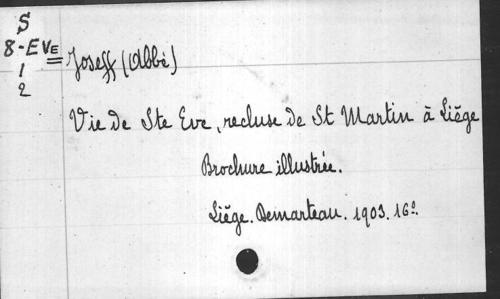 S
8-EVE
1
2
Joseff (Abbé)
Vie de Ste Eve, recluse de St Martin à Liége
Brochure illustrée.
Liége. Demarteau. 1903. 16º.